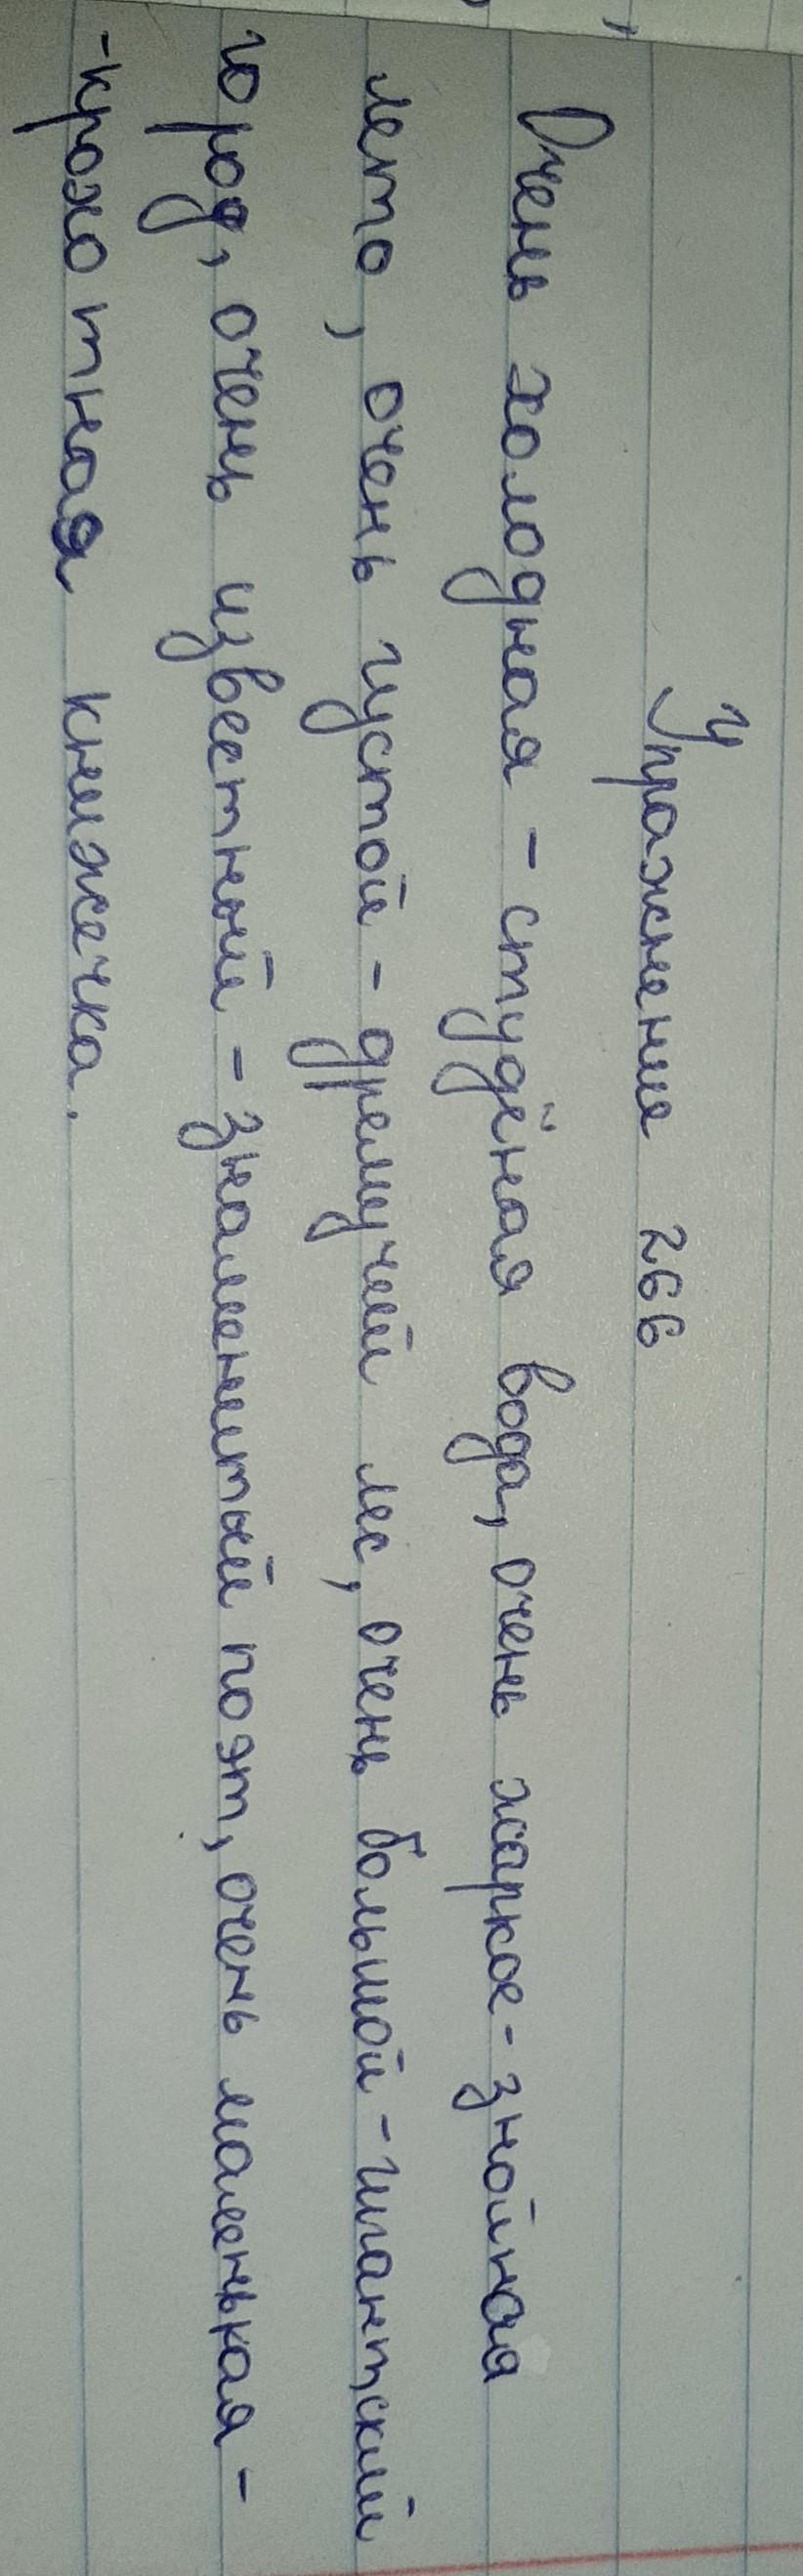 Упражнение 266
Очень холодная - студёная вода, очень жаркое - знойная
лето, очень густой - дремучий лес, очень большой - гигантский
город, очень известный - знаменитый поэт, очень маленькая -
-крохотная книжечка.